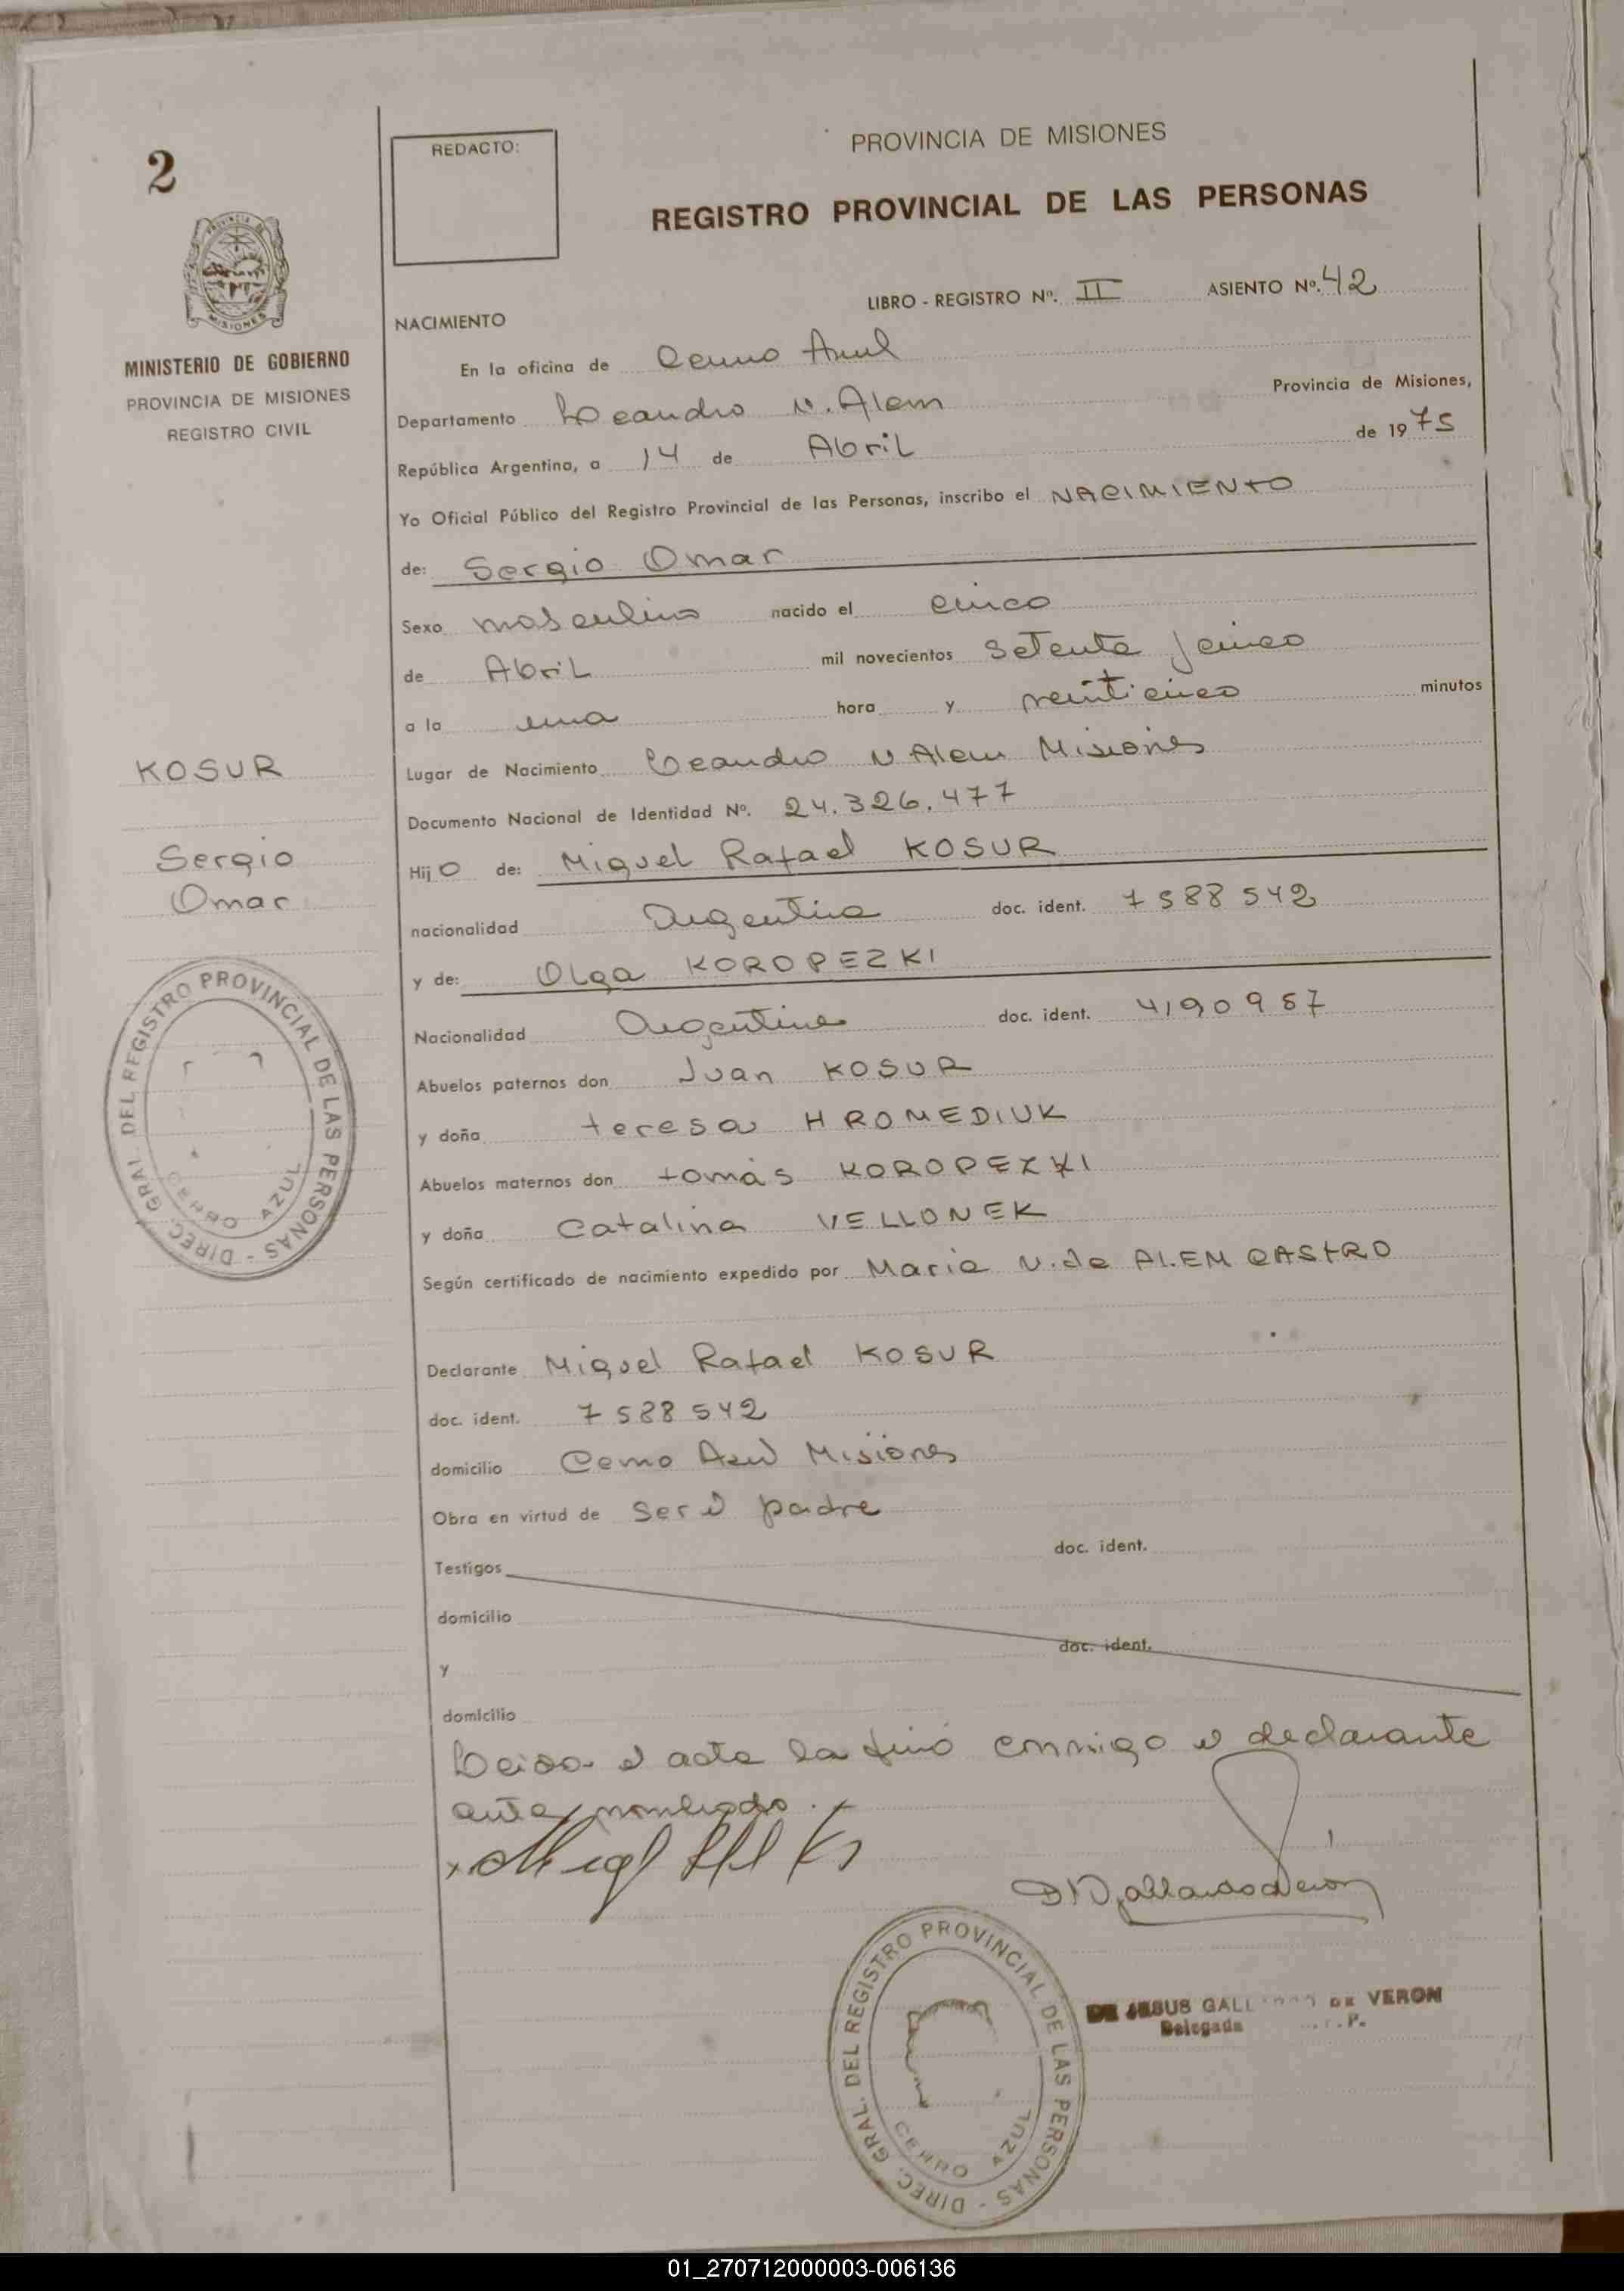 2
PROVINCIA DE
MISIONES
MINISTERIO DE GOBIERNO
PROVINCIA DE MISIONES
REGISTRO CIVIL
KOSUR
Sergio
Omar
DIREC. GRAL. DEL REGISTRO PROVINCIAL DE LAS PERSONAS -
CERRO AZUL
REDACTO:
PROVINCIA DE MISIONES
REGISTRO PROVINCIAL DE LAS PERSONAS
LIBRO - REGISTRO Nº. II ASIENTO Nº. 42
NACIMIENTO
En la oficina de Cerro Azul
Departamento Leandro N. Alem Provincia de Misiones,
República Argentina, a 14 de Abril de 1975
Yo Oficial Público del Registro Provincial de las Personas, inscribo el NACIMIENTO
de: Sergio Omar
Sexo masculino nacido el cinco
de Abril mil novecientos setenta y cinco
a la una hora y veinticinco minutos
Lugar de Nacimiento Leandro N Alem Misiones
Documento Nacional de Identidad Nº. 24.326.477
Hijo de: Miguel Rafael KOSUR
nacionalidad Argentina doc. ident. 7588542
y de: Olga KOROPEZKI
Nacionalidad Argentina doc. ident. 4190987
Abuelos paternos don Juan KOSUR
y doña teresa HROMEDIUK
Abuelos maternos don tomás KOROPEZKI
y doña Catalina VELLONEK
Según certificado de nacimiento expedido por Maria N. de ALEM CASTRO
Declarante Miguel Rafael KOSUR
doc. ident. 7588542
domicilio Cerro Azul Misiones
Obra en virtud de ser el padre
Testigos doc. ident.
domicilio
y doc. ident.
domicilio
Leida el acta la firmó conmigo el declarante
ante nombrado.
DE JESUS GALL DE VERON
Delegada P.
DIREC. GRAL. DEL REGISTRO PROVINCIAL DE LAS PERSONAS -
CERRO AZUL
01_270712000003-006136